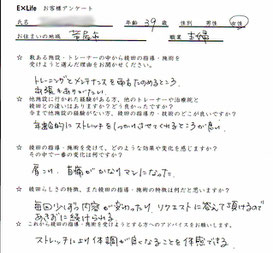 EXLife お客様アンケート
氏名 年齢 39 歳 性別 男性 女性
お住まいの地域 職業 主婦
☆ 数ある施設・トレーナーの中から綾田の指導・施術を
受けようと選んだ理由をお聞かせください。
トレーニングとメンテナンスを
出張もありがたい。
☆ 他施設に行かれた経験がある方、他のトレーナーや治療院と
綾田との違いはありますか?どう良かったですか?
ストレッチをしっかりさせてくれるところが良い。
☆ 綾田の指導・施術を受けて、どのような効果や変化を感じますか?
その中で一番の変化は何ですか?
肩こり、首痛がかなりマシになった。
☆ 綾田らしさの特徴、また綾田の指導・施術の特徴は何だと思いますか?
毎回少しずつ内容が変わったり、リクエストに答えて頂けるので
あきずに続けられる。
☆ これから綾田の指導・施術を受けようとする方へのアドバイスをお願いします。
ストレッチにより体調が良くなることを体感できる。